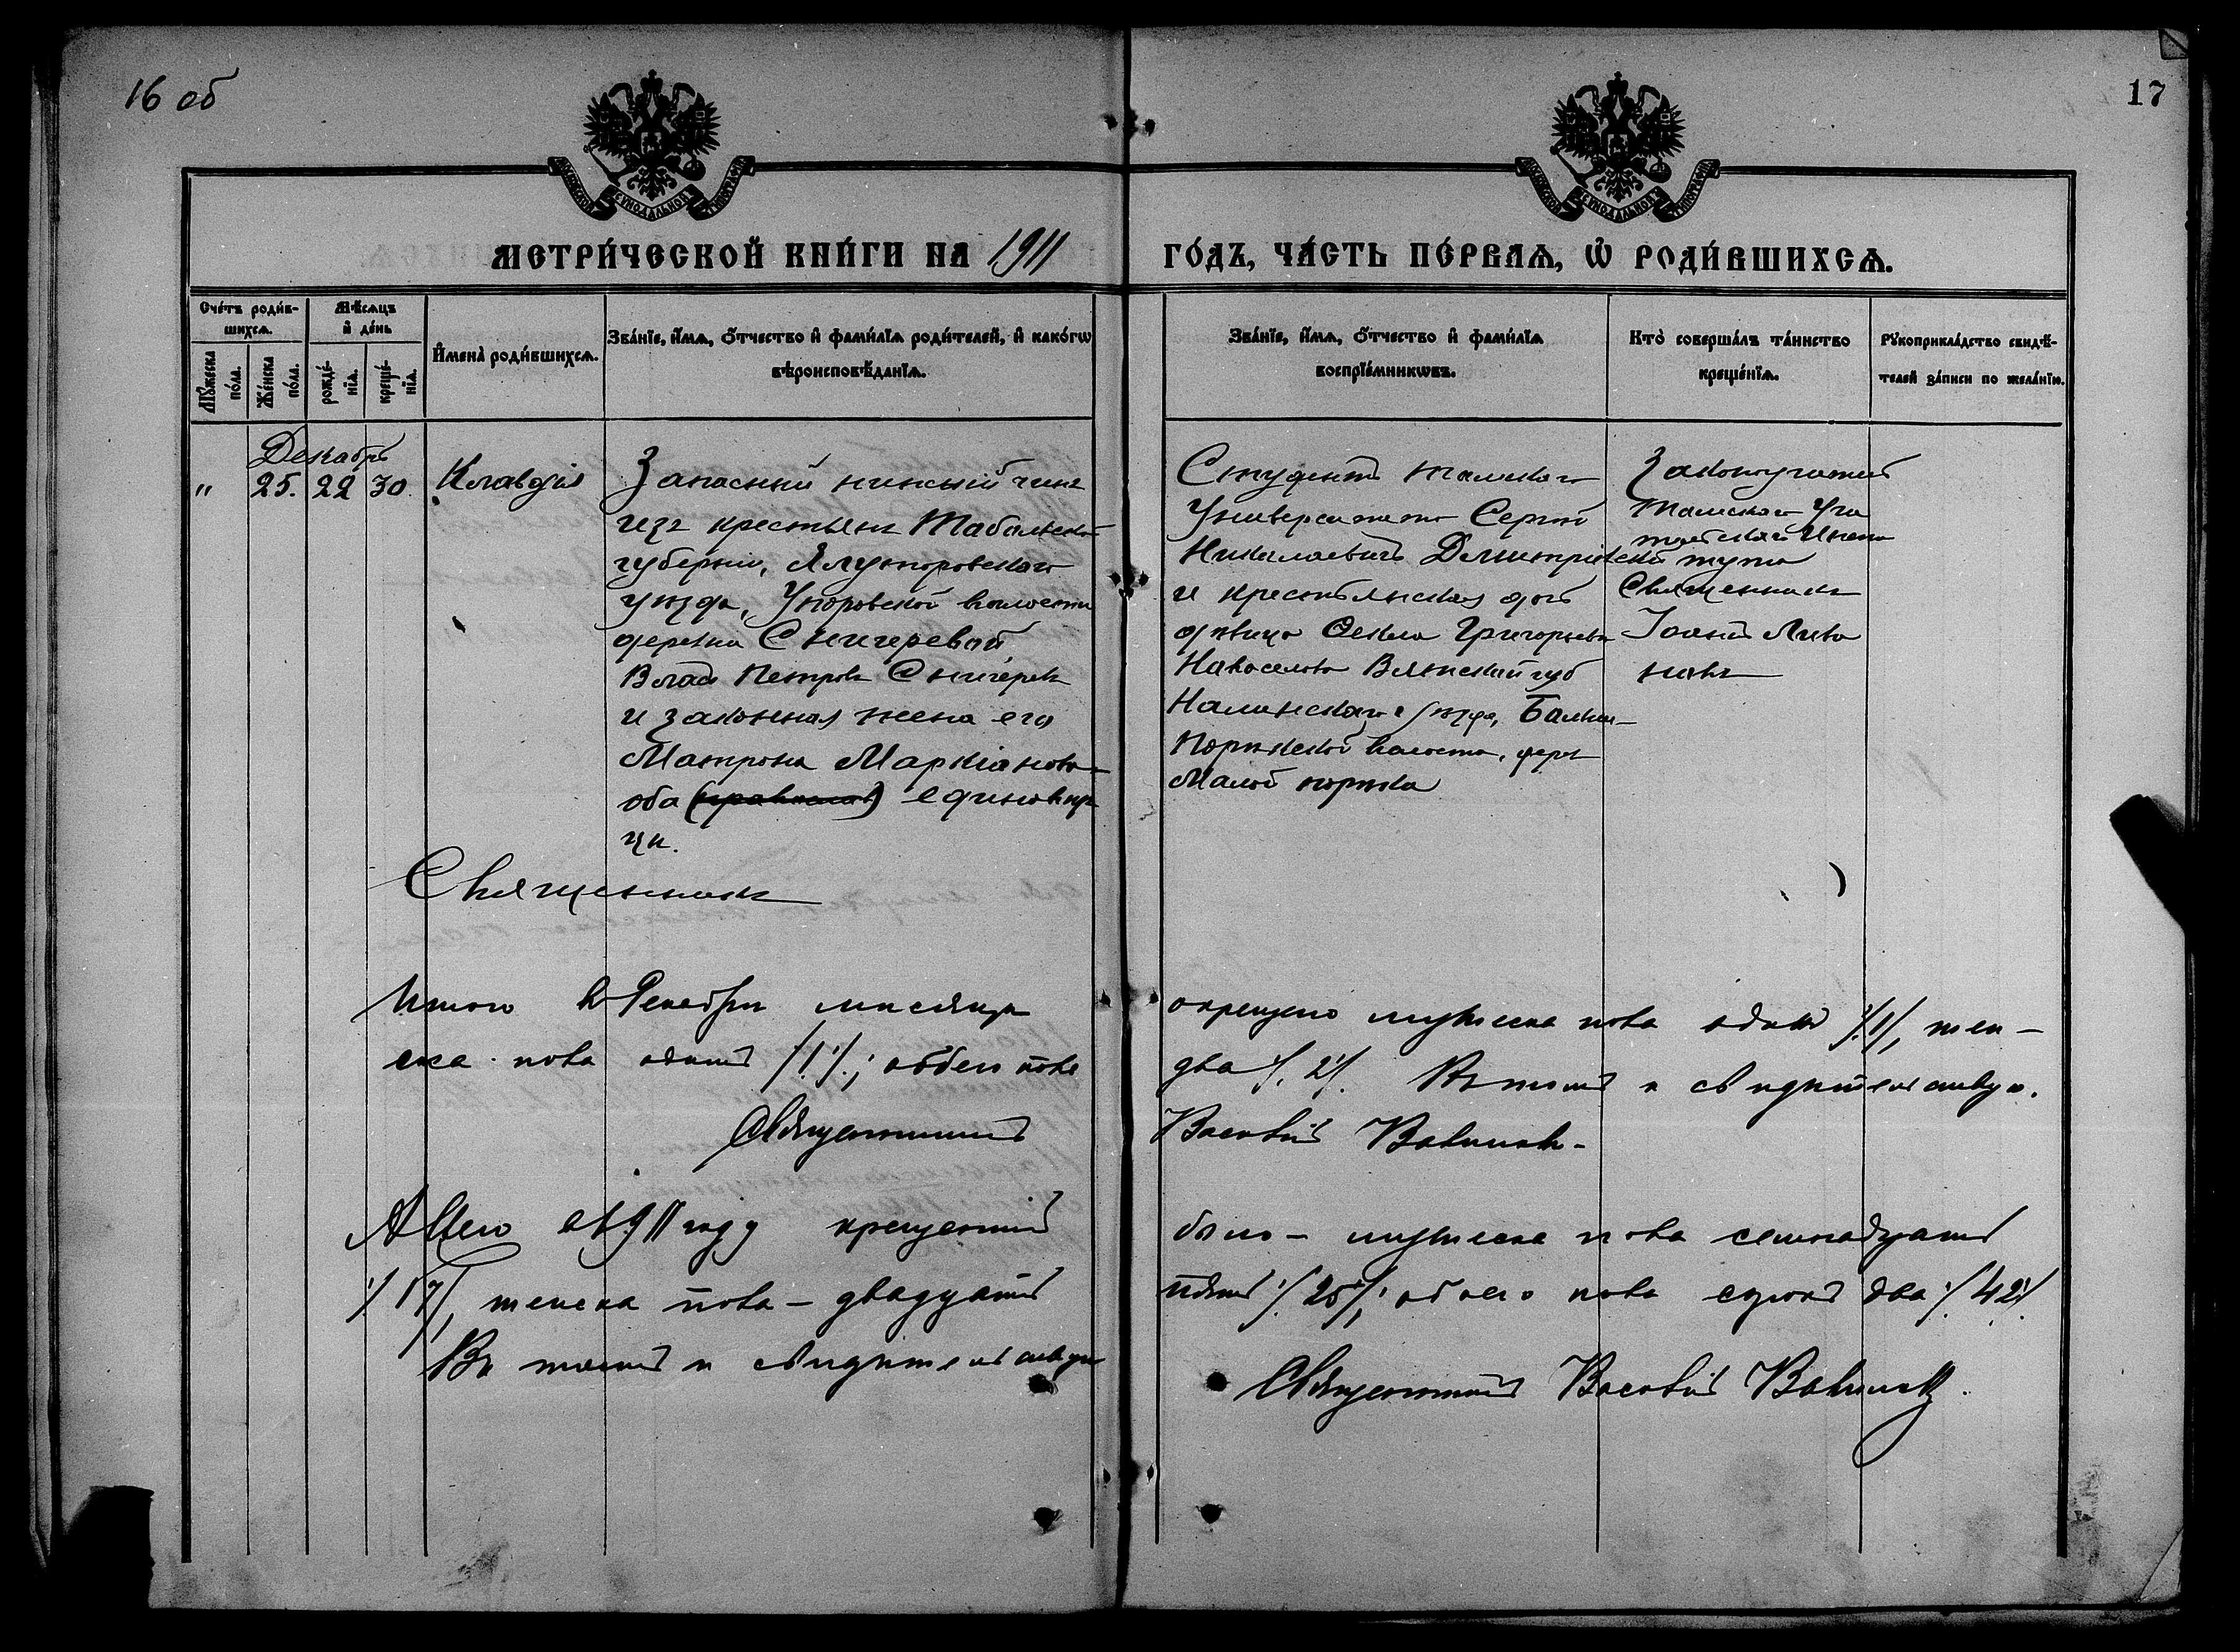 16 об
17
МЕТРИ́ЧЕСКОЙ КНИ́ГИ НА 1911
ГО́ДЪ, ЧА́СТЬ ПЕ́РВАѦ, Ѡ҆ РОДИ́ВШИХСѦ.
Сче́тъ роди́в-
шихсѧ.
Мꙋ́жеска по́ла.
Же́нска по́ла.
Мѣ́сѧцъ
и҆ де́нь
рожде́-
нїѧ.
креще́-
нїѧ.
И҆мена̀ роди́вшихсѧ.
Зва́нїе, и҆́мѧ, ѻ҆́тчество и҆ фами́лїѧ роди́телей, и҆ како́гѡ
вѣроисповѣ́данїѧ.
Зва́нїе, и҆́мѧ, ѻ҆́тчество и҆ фами́лїѧ
воспрїе́мникѡвъ.
Кто̀ соверша́лъ та́инство
креще́нїѧ.
Рꙋкоприкла́дство свидѣ́-
телей за́писи по жела́нїю.
Декабрь
" 25. 22 30. Клавдія
Запасный нижній чинъ
изъ крестьянъ Табольской
губерніи, Ялуторовскаго
уѣзда, Упоровской волости
деревни Снигеревой
Влас Петровъ Снигёревъ
и законная жена его
Матрона Маркіанова
оба (православ) единовѣр
цы.
Студентъ Томскаго
Университета Сергѣй
Николаевичъ Дмитріевскій
и крестьянская дочь
дѣвица Ѳекла Григорьева
Новоселова Вятской губ
Уѣзда,
волости, дер
Малой
Законоучитель
Томскаго Учи
тельскаго Инсти
тута
Священникъ
Іоаннъ Лива
новъ
Священникъ
Итого въ Декабрѣ мѣсяцѣ
окрещено мужеска пола одинъ /1/, жен-
ска пола одинъ /1/; обоего пола
два /2/. Въ томъ и свидѣтельствую.
Священникъ
Василій
Всего въ 1911 году крещеній
было - мужеска пола семнадцать
/17/, женска пола - двадцать
пять /25/; обоего пола сорокъ два /42/.
Въ томъ и свидѣтельствую
Священникъ Василій